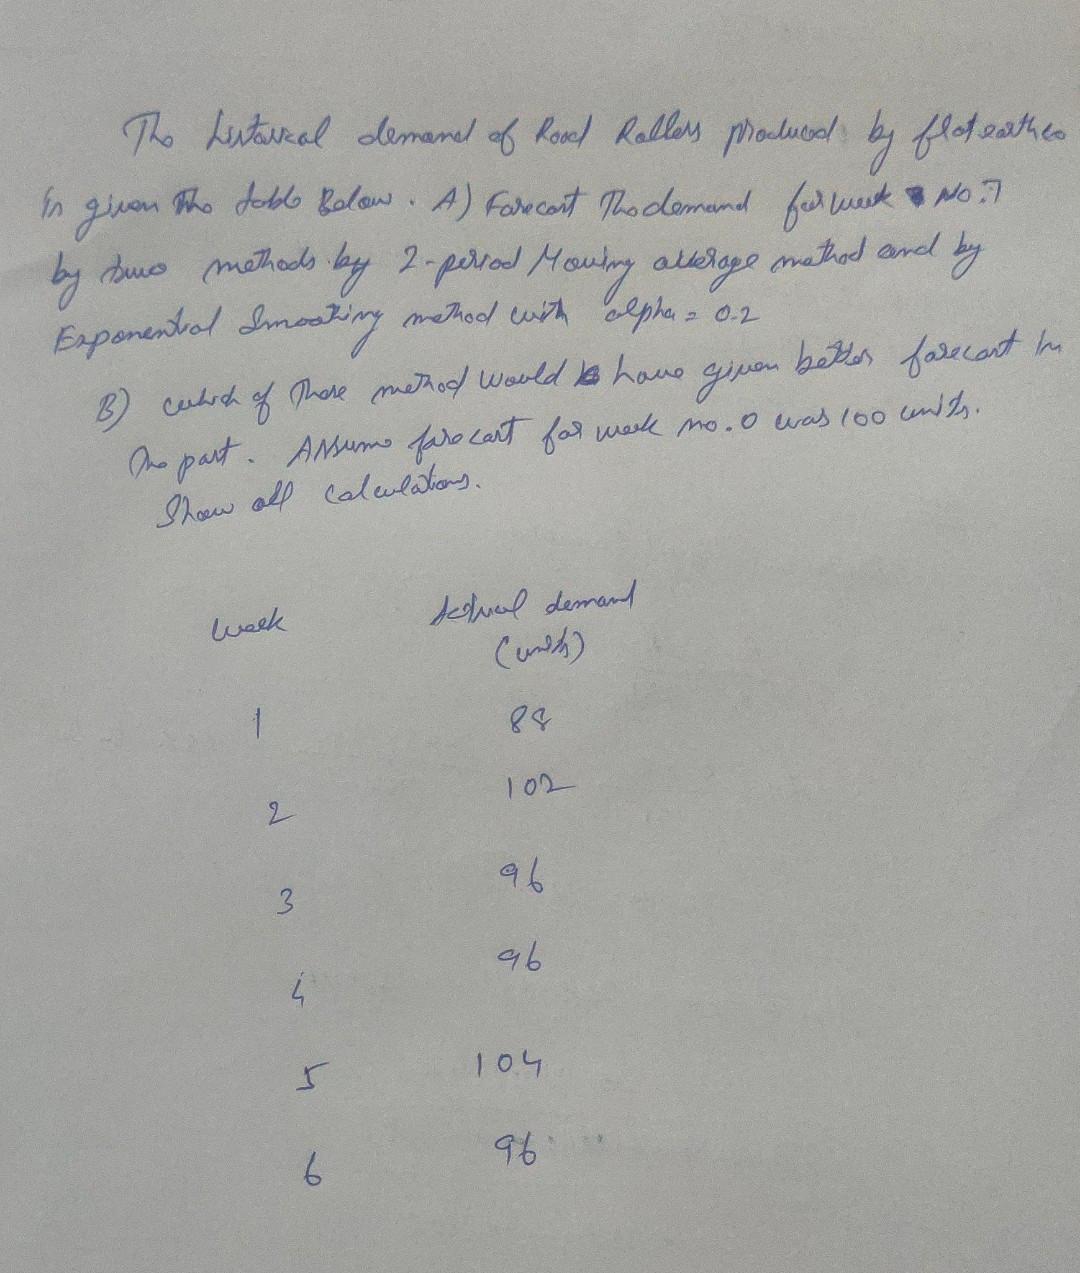 The historical demand of Road Rollers produced by flatearth co
is given the table Below. A) Forecast The demand for week No: 7
by two methods by 2-period Moving average method and by
Exponential Smoothing method with alpha = 0.2
B) which of these method would have given better forecast in
the past. Assume forecast for week no. 0 was 100 units.
Show all calculations.
week Actual demand
(units)
1 88
2 102
3 96
4 96
5 104
6 96